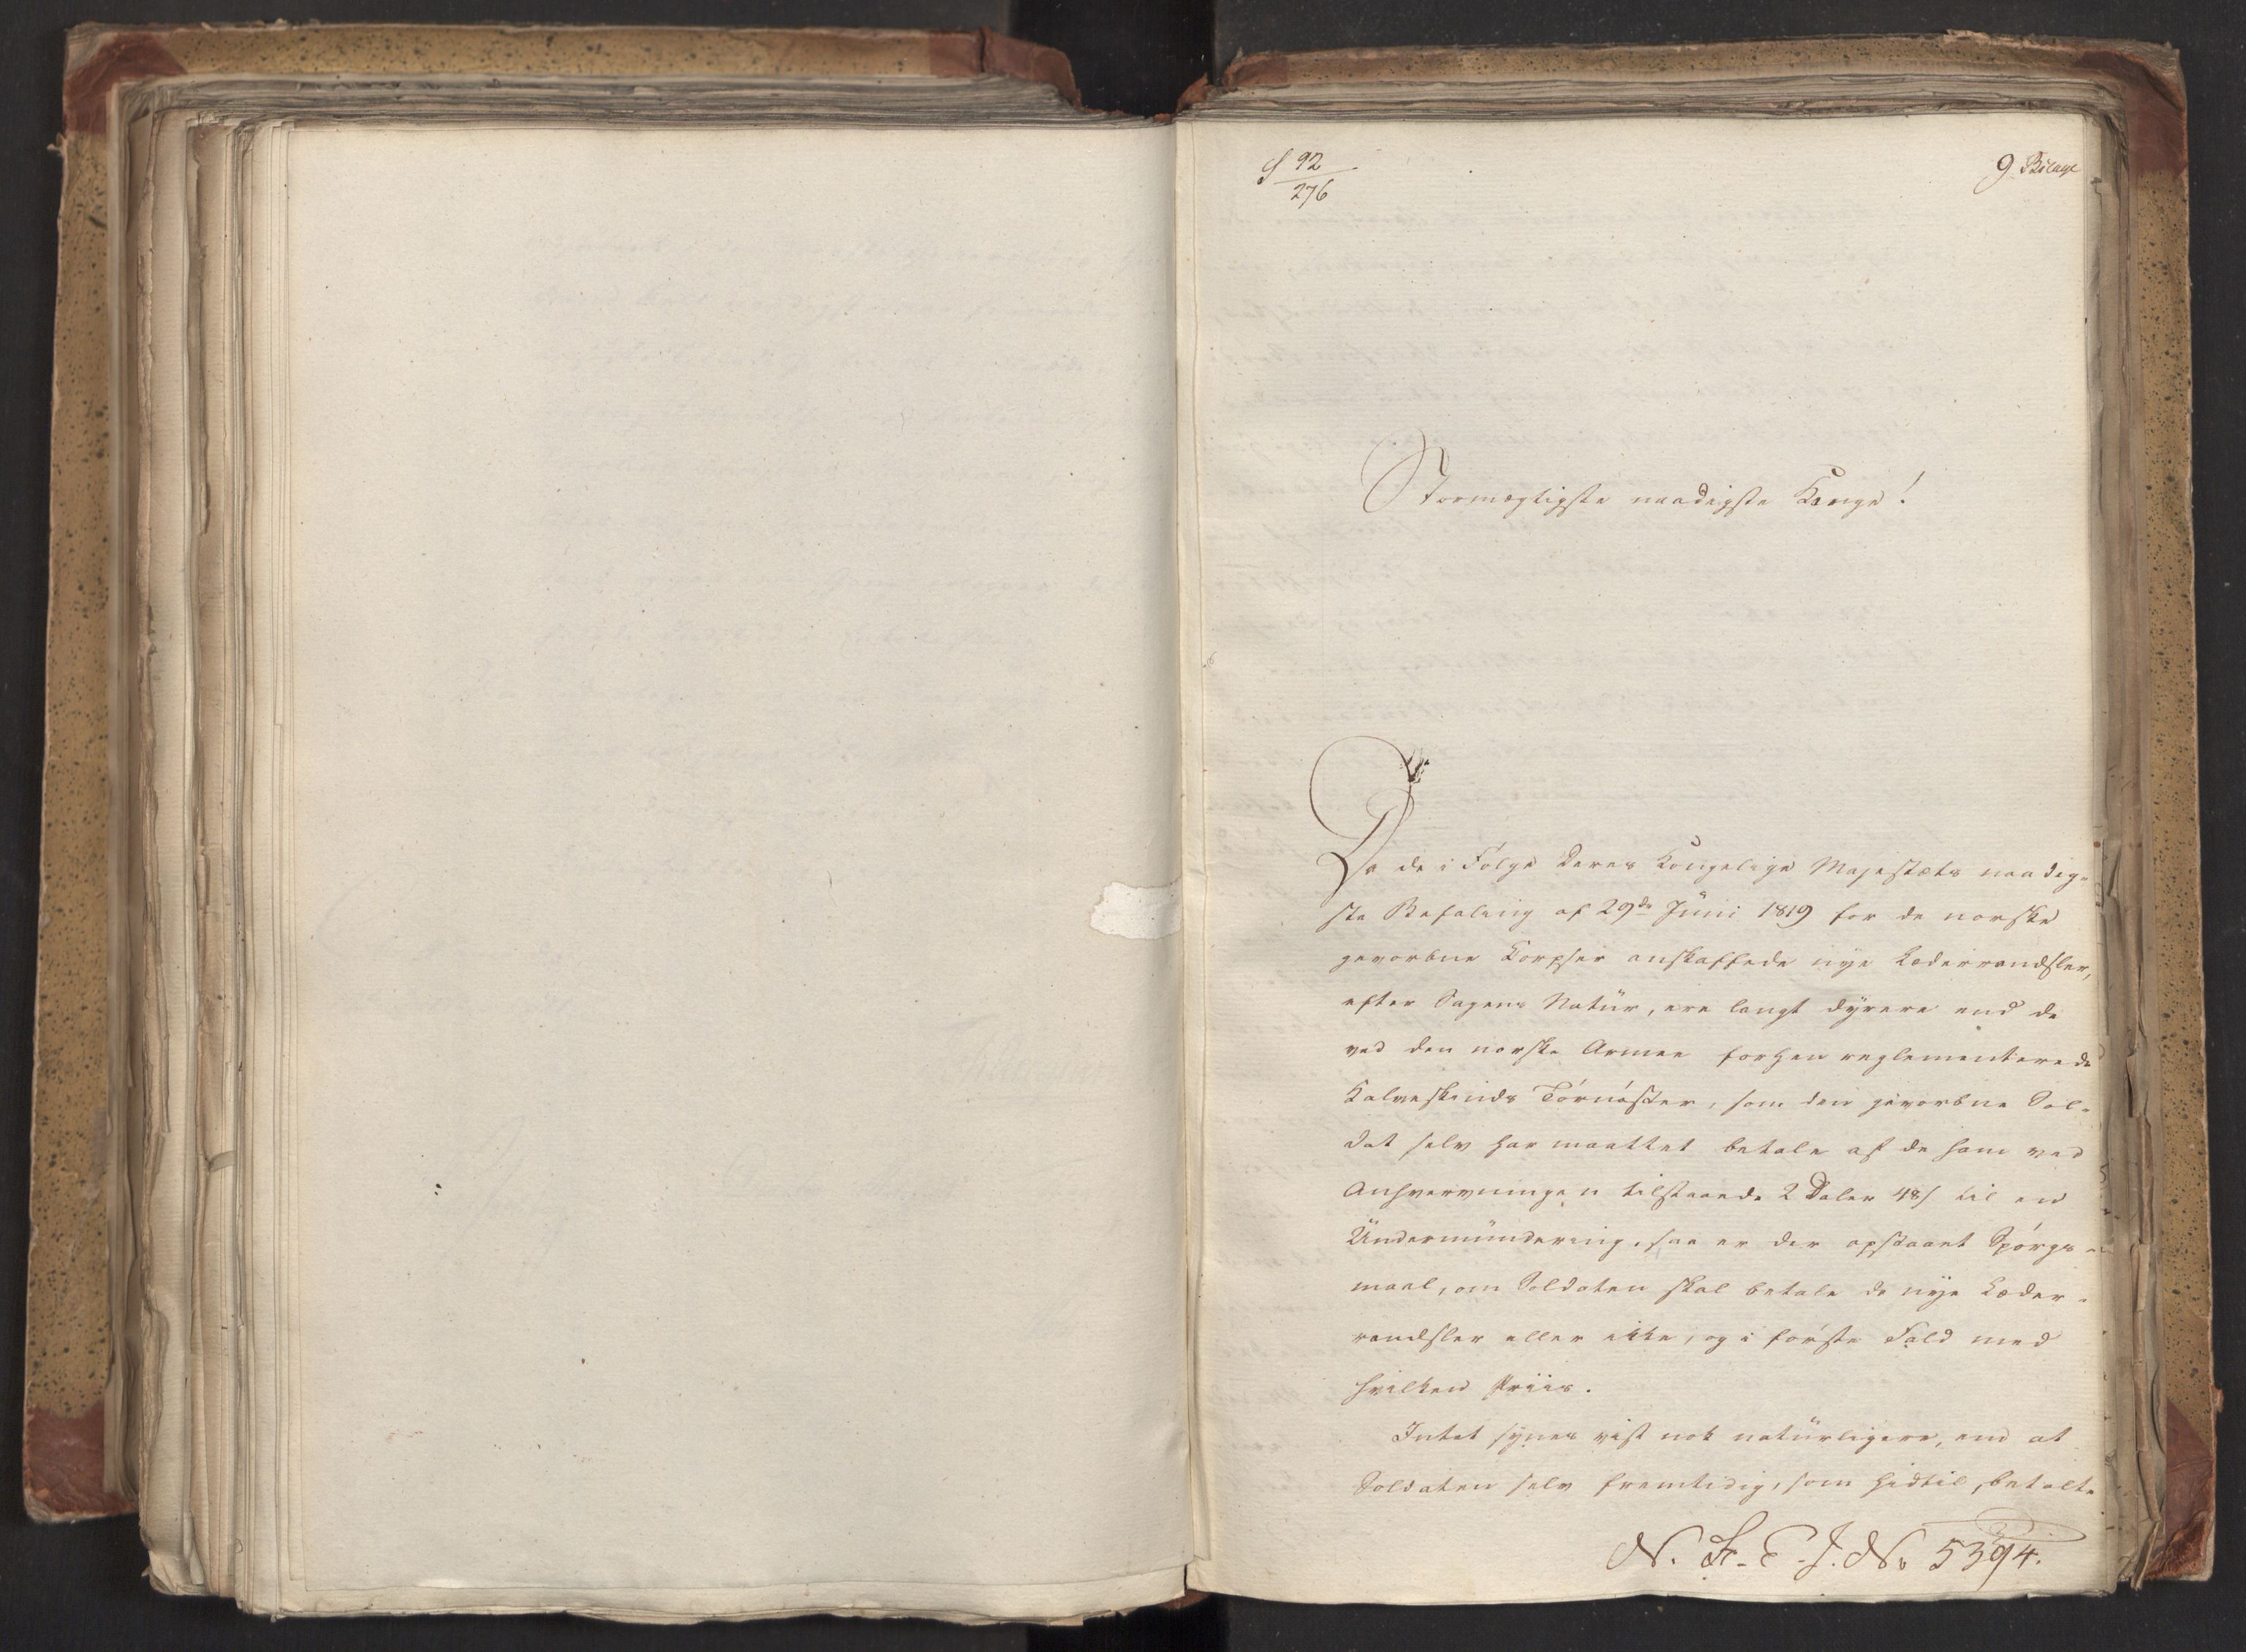 § 92
276
9 Bilage
Stormægtigste naadigste Konge!
Da de i Følge Deres Kongelige Majestæts naadig-
ste Befaling af 29de Juni 1819 for de norske
gevorbne Korpser anskaffede nye Læderrandsler,
efter Sagens Natur, ere langt dyrere end de
ved den norske Armee forhen reglementerede
Kalveskinds Tórnóster, som den gevorbne Sol-
dat selv har maattet betale af de ham ved
Anhvervningen tilstaaede 2 Daler 48 s til en
Undermundering, saa er der opstaaet Spórgs-
maal, om Soldaten skal betale de nye Læder-
randsler eller ikke, og i fórste Fald med
hvilken Priis.
Intet synes vist nok naturligere, end at
Soldaten selv fremtidig, som hidtil, betalte
5394.